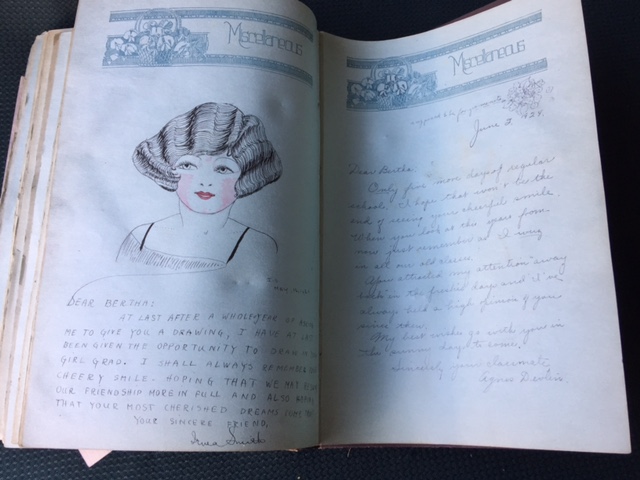 Miscellaneous
DEAR BERTHA:
AT LAST AFTER A WHOLE YEAR OF
ME TO GIVE YOU A DRAWING, I HAVE AT
BEEN GIVEN THE OPPORTUNITY TO DRAW
GIRL GRAD. I SHALL ALWAYS REMEMBER
CHEERY SMILE. HOPING THAT WE MAY
OUR FRIENDSHIP MORE IN FULL AND ALSO
THAT YOUR MOST CHERISHED DREAMS COME
YOUR SINCERE FRIEND,
Irma Smith
Miscellaneous
June 2
Dear Bertha,
Only five more days of regular
school. I hope that won't be the
end of seeing your cheerful smile.
When you look at this years from
now just remember
in art our old
You attracted my attention away
back in the days and I've
always held a high of you
since then.
My best wishes go with you in
the days to come.
Sincerely your classmate,
Agnes Devlin.